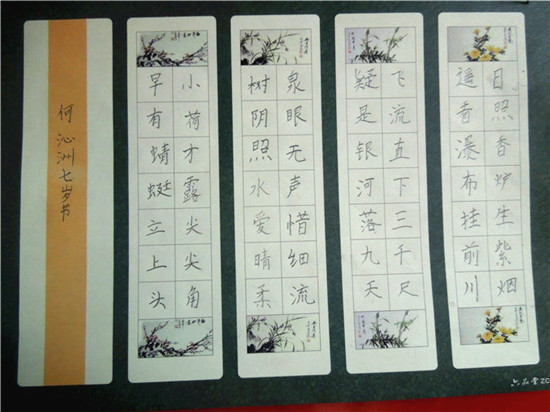 日照香炉生紫烟
遥看瀑布挂前川
飞流直下三千尺
疑是银河落九天
泉眼无声惜细流
树阴照水爱晴柔
小荷才露尖尖角
早有蜻蜓立上头
何沁洲七岁书
六品堂